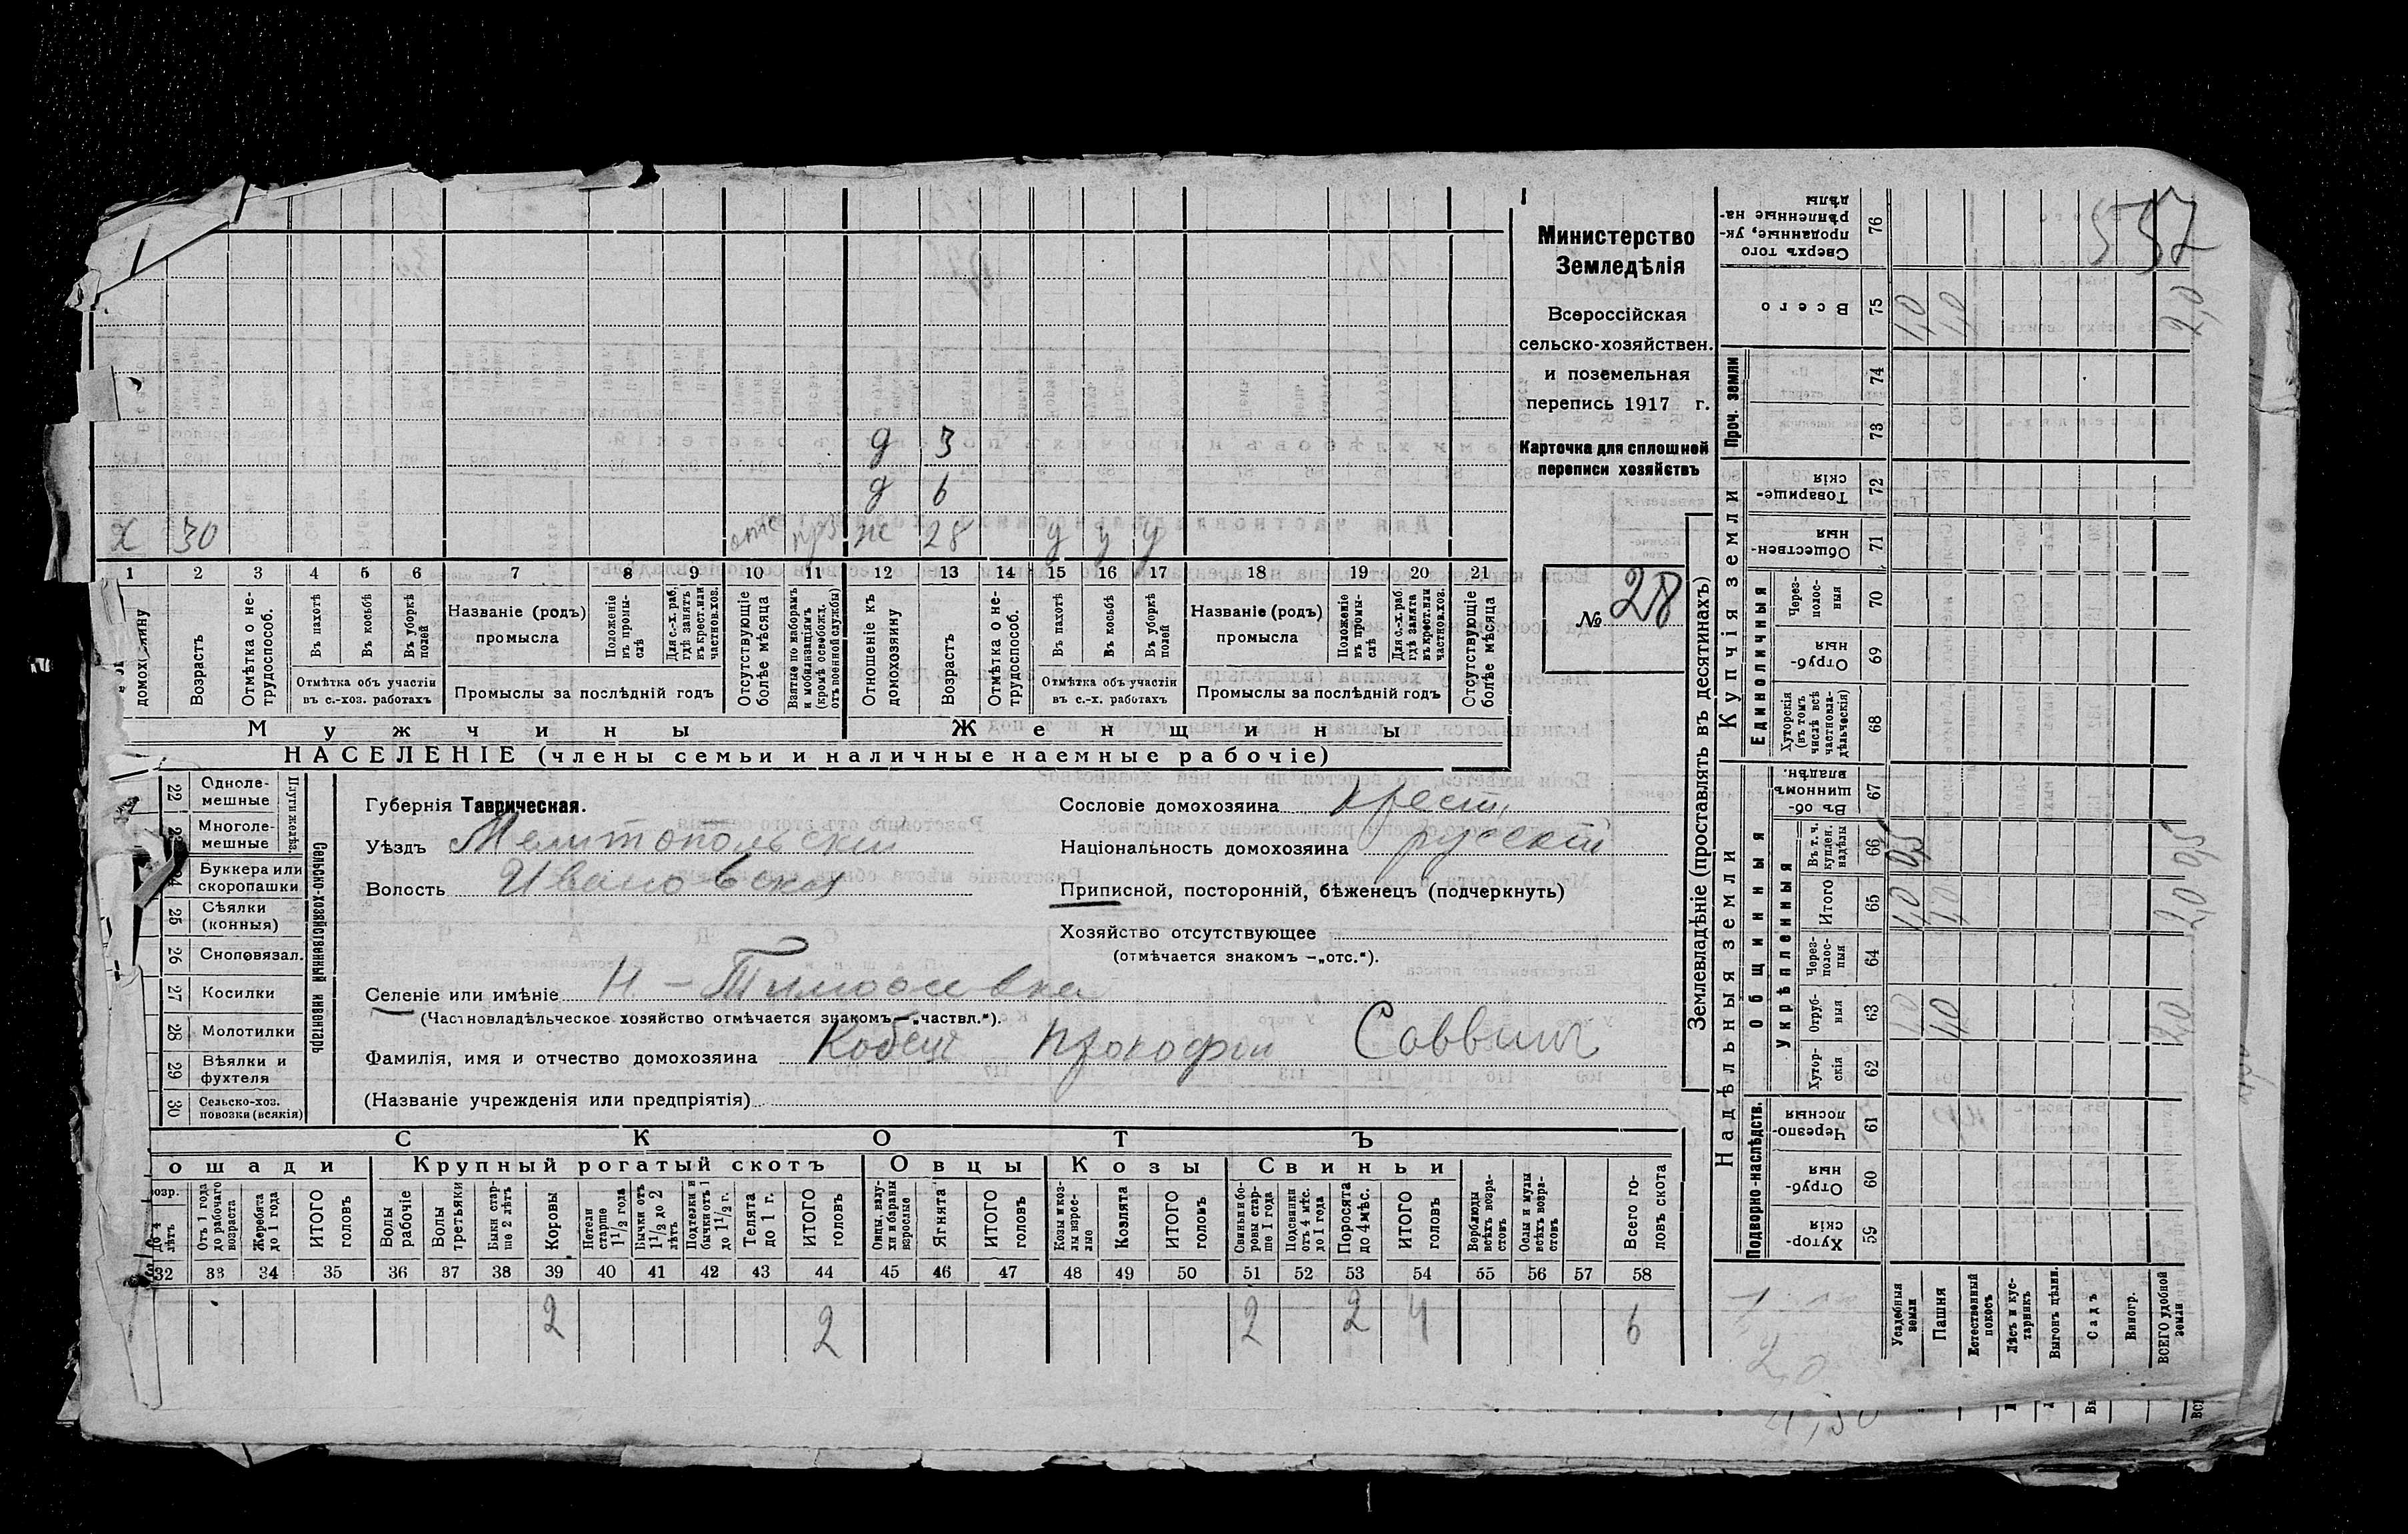 557
Министерство
Земледѣлія
Всероссійская
сельско-хозяйствен.
и поземельная
перепись 1917 г.
Карточка для сплошной
переписи хозяйствъ
№ 28
д 3
д 6
х 30 отс прз ж 28 у у у
1 2 3 4 5 6 7 8 9 10 11 12 13 14 15 16 17 18 19 20 21
домохозяину
Возрастъ
Отмѣтка о не-
трудоспособ.
Въ пахотѣ
Въ косьбѣ
Въ уборкѣ
полей
Отмѣтка объ участіи
въ с.-хоз. работахъ
Названіе (родъ)
промысла
Положеніе
въ промы-
слѣ
Для с.-х. раб.
гдѣ занятъ
въ крест. или
частнов. хоз.
Промыслы за послѣдній годъ
Отсутствующіе
болѣе мѣсяца
Взятые по наборамъ
и мобилизаціямъ
(кромѣ освобожд.
отъ военной службы)
Отношеніе къ
домохозяину
Возрастъ
Отмѣтка о не-
трудоспособ.
Въ пахотѣ
Въ косьбѣ
Въ уборкѣ
полей
Отмѣтка объ участіи
въ с.-х. работахъ
Названіе (родъ)
промысла
Положеніе
въ промы-
слѣ
Для с.-х. раб.
гдѣ занята
въ крест. или
частнов. хоз.
Промыслы за послѣдній годъ
Отсутствующіе
болѣе мѣсяца
Мужчины Женщины
НАСЕЛЕНІЕ (члены семьи и наличные наемные рабочіе)
22 Одноле-
мешные
Многоле-
мешные
Плуги желѣз.
Буккера или
скоропашки
25 Сѣялки
(конныя)
26 Сноповязал.
27 Косилки
28 Молотилки
29 Вѣялки и
фухтеля
30 Сельско-хоз.
повозки (всякія)
Сельско-хозяйственный инвентарь
Губернія Таврическая.
Уѣздъ Мелитопольскій
Волость Ивановская
Селеніе или имѣніе Н. - Тимофеевка
(Частновладѣльческое хозяйство отмѣчается знакомъ —„частвл.“).
Фамилія, имя и отчество домохозяина Кобецъ Прокофій Саввич
(Названіе учрежденія или предпріятія)
Сословіе домохозяина крест.
Національность домохозяина русскій
Приписной, посторонній, бѣженецъ (подчеркнуть)
Хозяйство отсутствующее
(отмѣчается знакомъ —„отс.“).
СКОТЪ
ошади Крупный рогатый скотъ Овцы Козы Свиньи
До 4
лѣтъ
Отъ 1 года
до рабочаго
возраста
Жеребята
до 1 года
ИТОГО
головъ
Волы
рабочіе
Волы
третьяки
Быки стар-
ше 2 лѣтъ
Коровы
Нетели
старше
1 1/2 года
Бычки отъ
1 1/2 до 2
лѣтъ
Подтелки и
бычки отъ 1
до 1 1/2 г.
Телята
до 1 г.
ИТОГО
головъ
Овцы, валу-
хи и бараны
взрослые
Ягнята
ИТОГО
головъ
Козы и коз-
лы взрос-
лые
Козлята
ИТОГО
головъ
Свиньи и бо-
ровы стар-
ше 1 года
Подсвинки
отъ 4 мѣс.
до 1 года
Поросята
до 4 мѣс.
ИТОГО
головъ
Верблюды
всѣхъ возра-
стовъ
Ослы и мулы
всѣхъ возра-
стовъ
Всего го-
ловъ скота
32 33 34 35 36 37 38 39 40 41 42 43 44 45 46 47 48 49 50 51 52 53 54 55 56 57 58
2 2 2 2 4 6
Землевладѣніе (проставлять въ десятинахъ)
Надѣльныя земли
Купчія земли
Проч. земли
Подворно-наслѣдств.
Общинныя
Укрѣпленныя
Единоличныя
Сверхъ того
проданные, ук-
рѣпленные на-
дѣлы
76
Всего 75 40 40 2,0
74
73
Товарище-
скія 72
Обществен-
ныя 71
Через-
полос-
ныя 70
Отруб-
ныя 69
Хуторскія
(въ томъ
числѣ всѣ
частновла-
дѣльческія) 68
Въ об-
щинномъ
владѣн. 67
Въ т. ч.
куплен.
надѣлы 66 95 95
Итого 65 40 40 2,0
Через-
полос-
ныя 64
Отруб-
ныя 63 40 40 2,0
Хутор-
скія 62
Черезпо-
лосныя 61
Отруб-
ныя 60
Хутор-
скія 59
Усадебныя
земли
Пашня
Естественный
покосъ
Лѣсъ и кус-
тарникъ
Выгонъ цѣлин.
Садъ
Виногр.
ВСЕГО удобной
земли
2,0